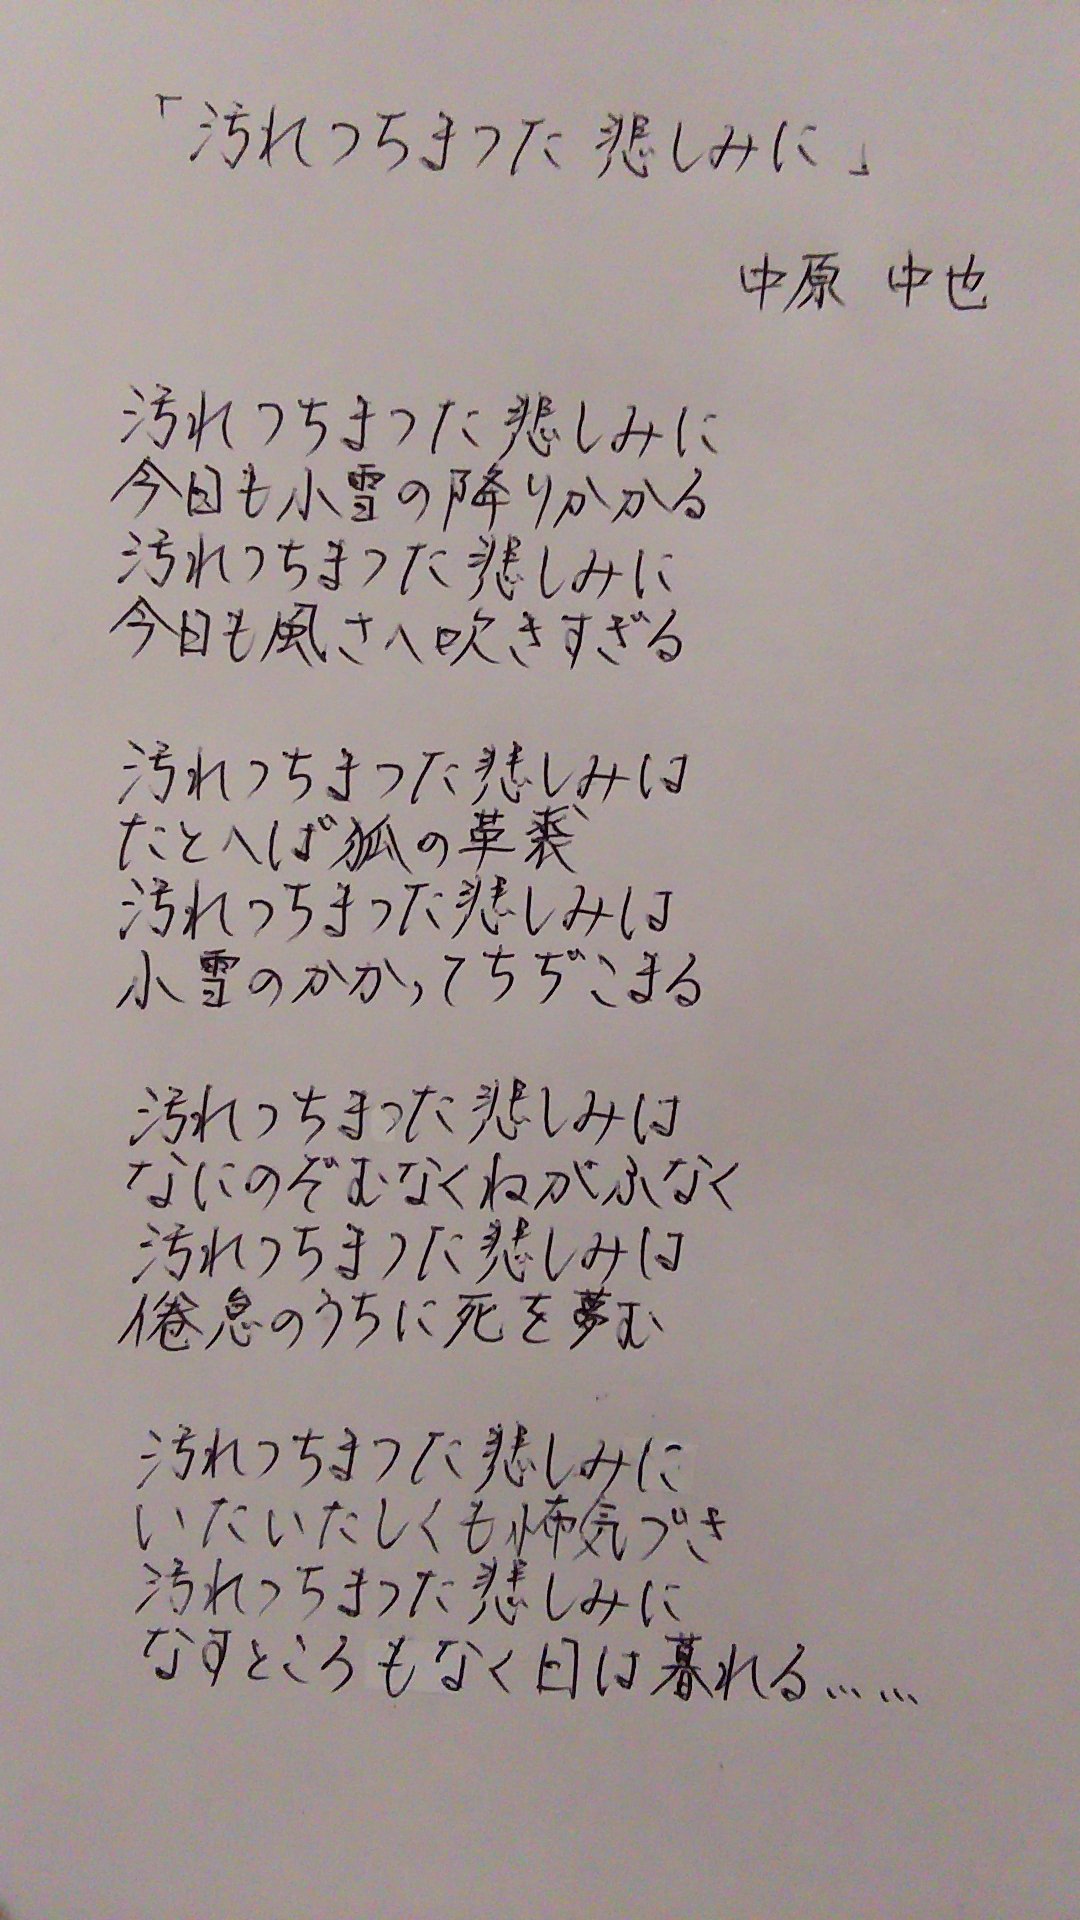 「汚れつちまつた悲しみに」
中原 中也
汚れつちまつた悲しみに
今日も小雪の降りかかる
汚れつちまつた悲しみに
今日も風さへ吹きすぎる
汚れつちまつた悲しみは
たとへば狐の革裘
汚れつちまつた悲しみは
小雪のかかってちぢこまる
汚れつちまつた悲しみは
なにのぞむなくねがふなく
汚れつちまつた悲しみは
倦怠のうちに死を夢む
汚れつちまつた悲しみに
いたいたしくも怖気づき
汚れつちまつた悲しみに
なすところもなく日は暮れる……